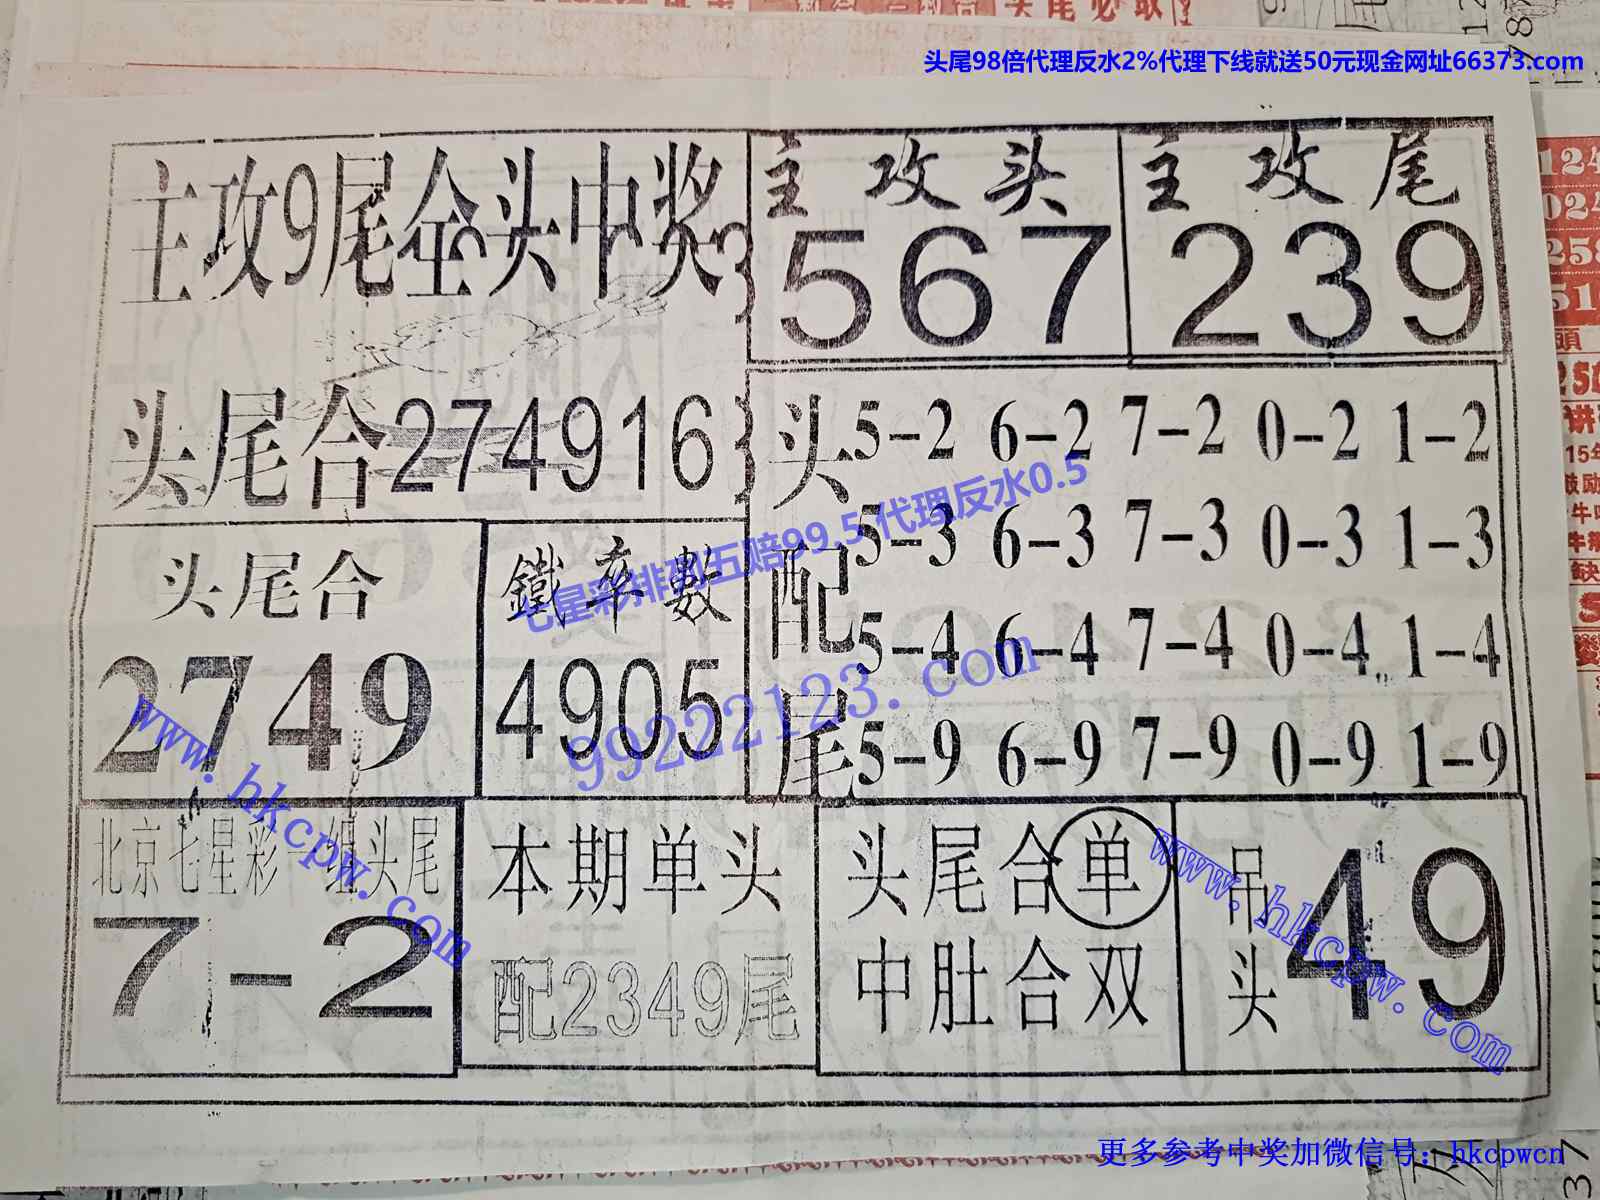 头尾98倍代理反水2%代理下线就送50元现金网址66373.com
主攻9尾全头中奖
主攻头
567
主攻尾
239
头尾合274916
头尾合
2749
鐵率數
4905
头配尾
5-2 6-2 7-2 0-2 1-2
5-3 6-3 7-3 0-3 1-3
5-4 6-4 7-4 0-4 1-4
5-9 6-9 7-9 0-9 1-9
七星彩排列五赔99.5 代理反水0.5
99222123.com
北京七星彩一组头尾
7-2
本期单头
配2349尾
头尾合单
中肚合双
吊头
49
www.hkcpw.com
www.hkcpw.com
更多参考中奖加微信号：hkcpwcn